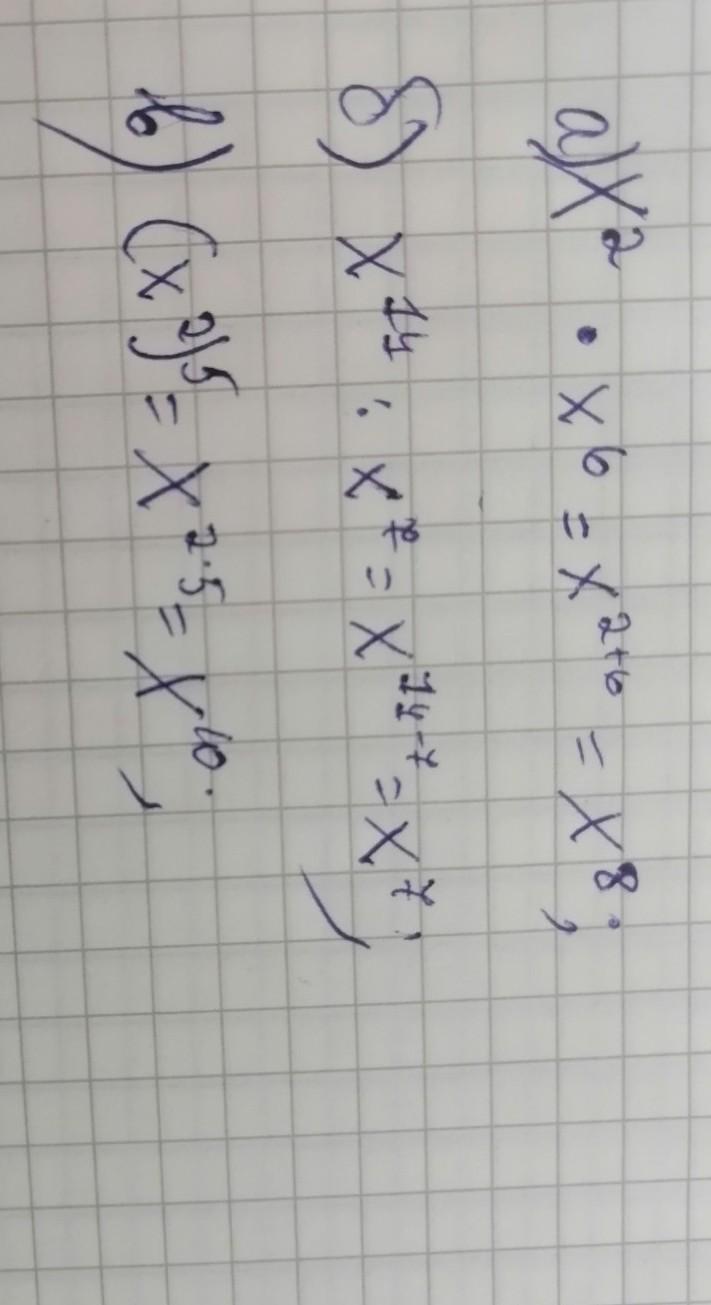 а) x² · x⁶ = x²⁺⁶ = x⁸;
б) x¹⁴ : x⁷ = x¹⁴⁻⁷ = x⁷;
в) (x²)⁵ = x^2·5 = x¹⁰;